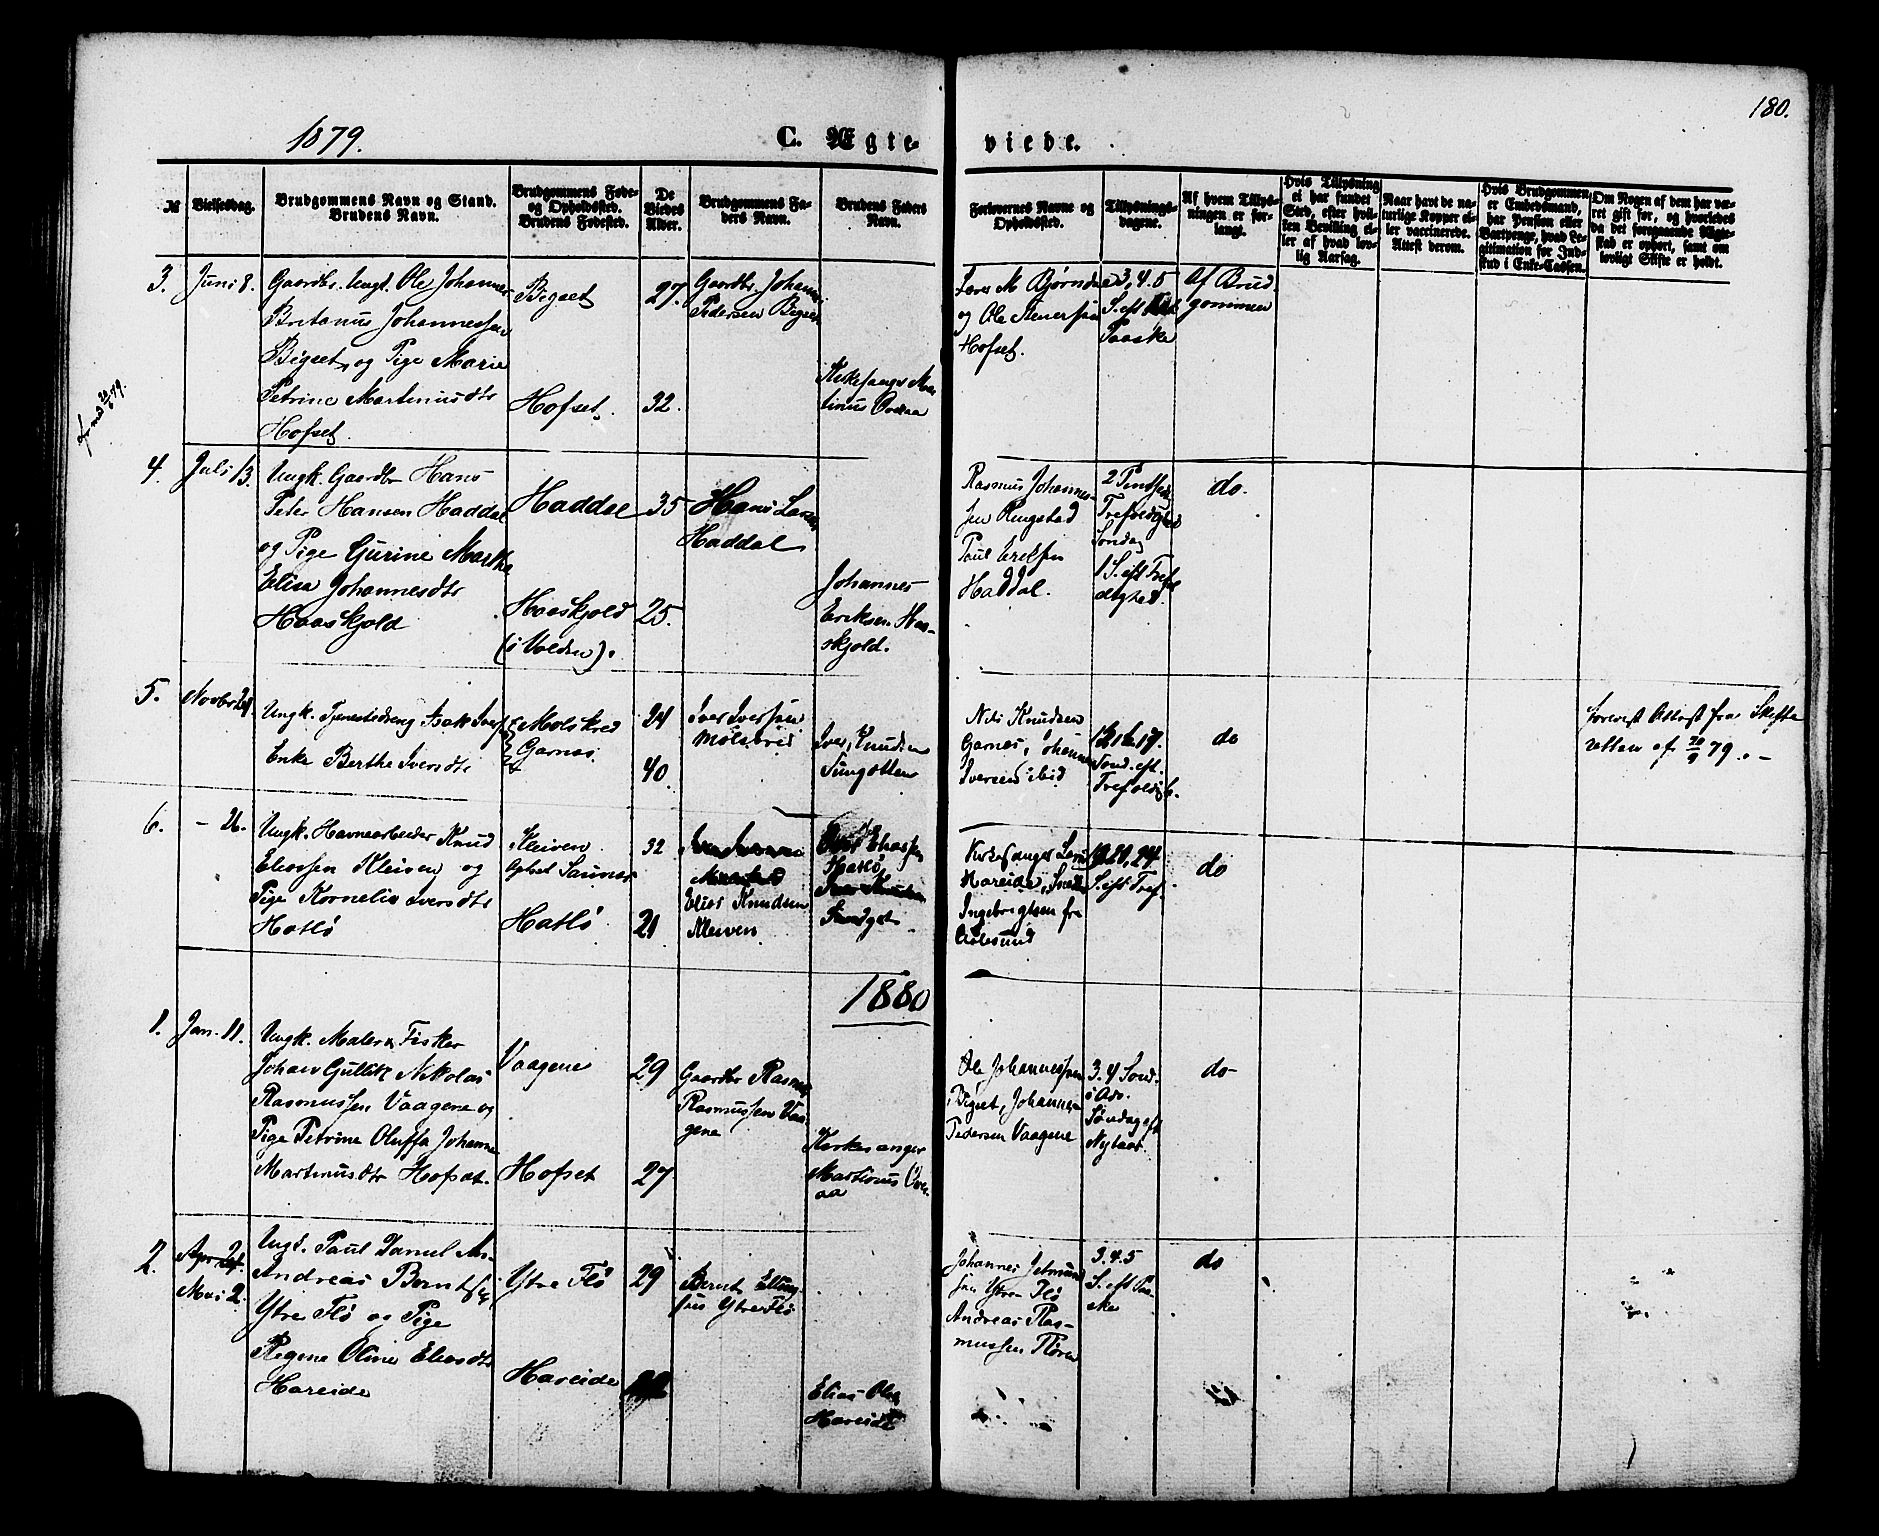 180.
1879.
C. Ægte-
viede.
№
Vielsesdag.
Brudgommens Navn og Stand.
Brudens Navn.
Brudgommens Føde-
og Opholdssted.
Brudens Fødested.
De
Viedes
Alder.
Brudgommens Fa-
ders Navn.
Brudens Faders
Navn.
Forlovernes Navne og
Opholdssted.
Tillysnings-
dagene.
Af hvem Tillys-
ningen er for-
langt.
Hvis Tillysning
ei har fundet
Sted, efter hvil-
ken Bevilling el-
ler af hvad lov-
lig Aarsag.
Naar havt de na-
turlige Kopper el-
ler vaccinerede.
Attest derom.
Hvis Brudgommen
er Embedsmand,
har Pension eller
Vartpenge, hvad Le-
gitimation for Ind-
skud i Enke-Cassen.
Om Nogen af dem har væ-
ret gift før, og hvorledes
da det foregaaende Ægte-
skab er ophørt, samt om
lovligt Skifte er holdt.
3. Juni 8.
Gaardbr. Ungk. Ole Johannes
Britanus Johannessen
Bigset, og Pige Marie
Petrine Martinusdtr
Hofset.
Bigset
Hofset.
27.
32.
Gaardbr. Johannes
Pedersen Bigset
Kirkesanger Mar-
tinus Overaa
og Ole
Hofset.
3, 4. 5
S. eft
Paaske
Af Brud-
gommen
4. Juli 13.
Ungk. Gaardbr Hans
Peter Hansen Haddal
og Pige Gurine Marthe
Elisa Johannesdtr
Haaskjold
Haddal
Haaskjold
(i Volden).
35
25.
Hans Larsen
Haddal
Johannes
Eriksen Haa-
skjold.
Rasmus Johannes-
sen Ringstad
Paul
Haddal.
2 Pindsedag
Trefoldigheds
Søndag
1 S. eft Trefol
dighed.
do.
5. Novbr
Ungk. Iver
Enke Berthe Iversdtr
Molskred
Garnes
24
40
Iver Iversen
Molskred
Iver Knudsen
Nils Knudsen
Garnes, Johannes
Iversen ibid
Sønd. eft.
Trefoldigh.
do
forevist Attest fra Skifte
retten af 79. –
6. – 26.
Ungk. Havnearbeider Knud
Eliassen Kleiven og
Pige Kornelia Iversdtr
Hatlø
Kleiven
Hatlø
32
21
Elias Knudsen
Kleiven
Eliassen
Hatlø
Kirkesanger
Hareide,
Ingebrigtsen fra
Aalesund
S. eft Tref.
do
1880
1. Jan. 11.
Ungk. Maler & Fisker
Johan Gullik Nikolai
Rasmussen Vaagene og
Pige Petrine Oluffa Johanne
Martinusdtr Hofset.
Vaagene
Hofset
29
27
Gaardbr Rasmus
Rasmussen Vaa-
gene
Kirkesanger
Martinus Over-
aa
Ole Johannessen
Bigset, Johannes
Pedersen Vaagene
3. 4 Sønd.
i Adv.
Søndag eft
Nytaar
do
2.
Mai 2.
Ungk. Paul Daniel An-
Andreas Berntsen
Ytre Flø og Pige
Regine Oline Eliasdtr
Hareide
Ytre Flø
Hareide
29
Bernt Elling-
sen Ytre Flø
Elias Olsen
Hareide
Johannes
sen Ytre Flø
Andreas Ras-
mussen
3. 4. 5
S. eft Paa-
ske
do